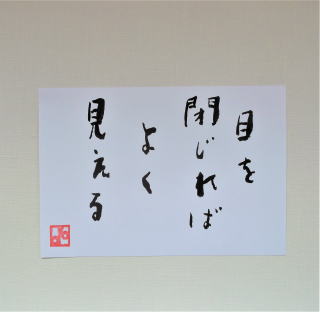 目を
閉じれば
よく
見える